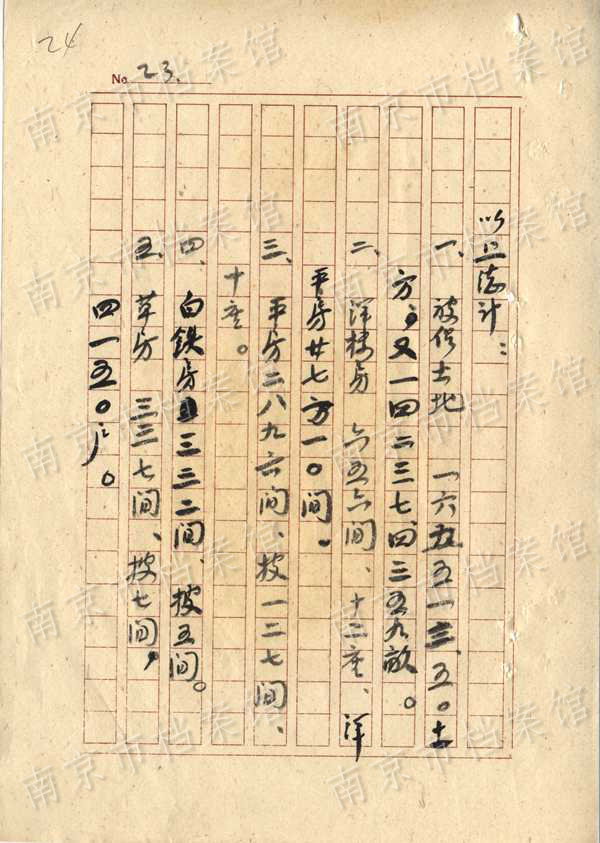 24
No 23.
以上总计：
一、被占土地 一六五五一三、五〇土
方；又一四二三七、四三五九畝。
二、洋楼房 六五六间、十二座、洋
平房廿七方一〇间。
三、平房二八九六间、披一二七间、
十座。
四、白鉄房三三二间、披五间。
五、草房 三三七间、披七间，
四一五〇户。
南京市档案馆